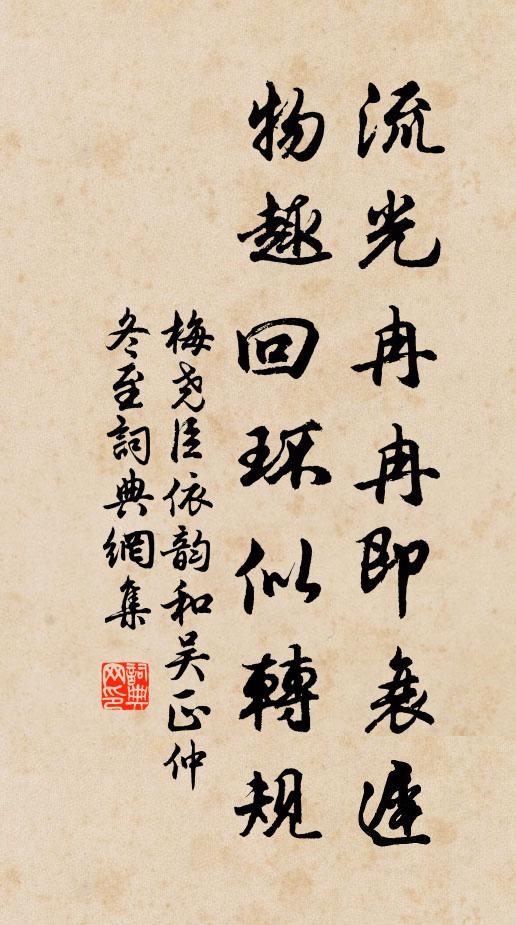 流光冉冉即衰遲
物趣回环似轉規
梅尧臣依韵和吴正仲
冬至詞典網集
詞典网印